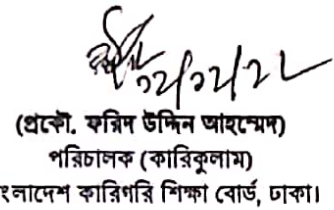 ১২/১২/২২
(প্রকৌ. ফরিদ উদ্দিন আহম্মেদ)
পরিচালক (কারিকুলাম)
ংলাদেশ কারিগরি শিক্ষা বোর্ড, ঢাকা।